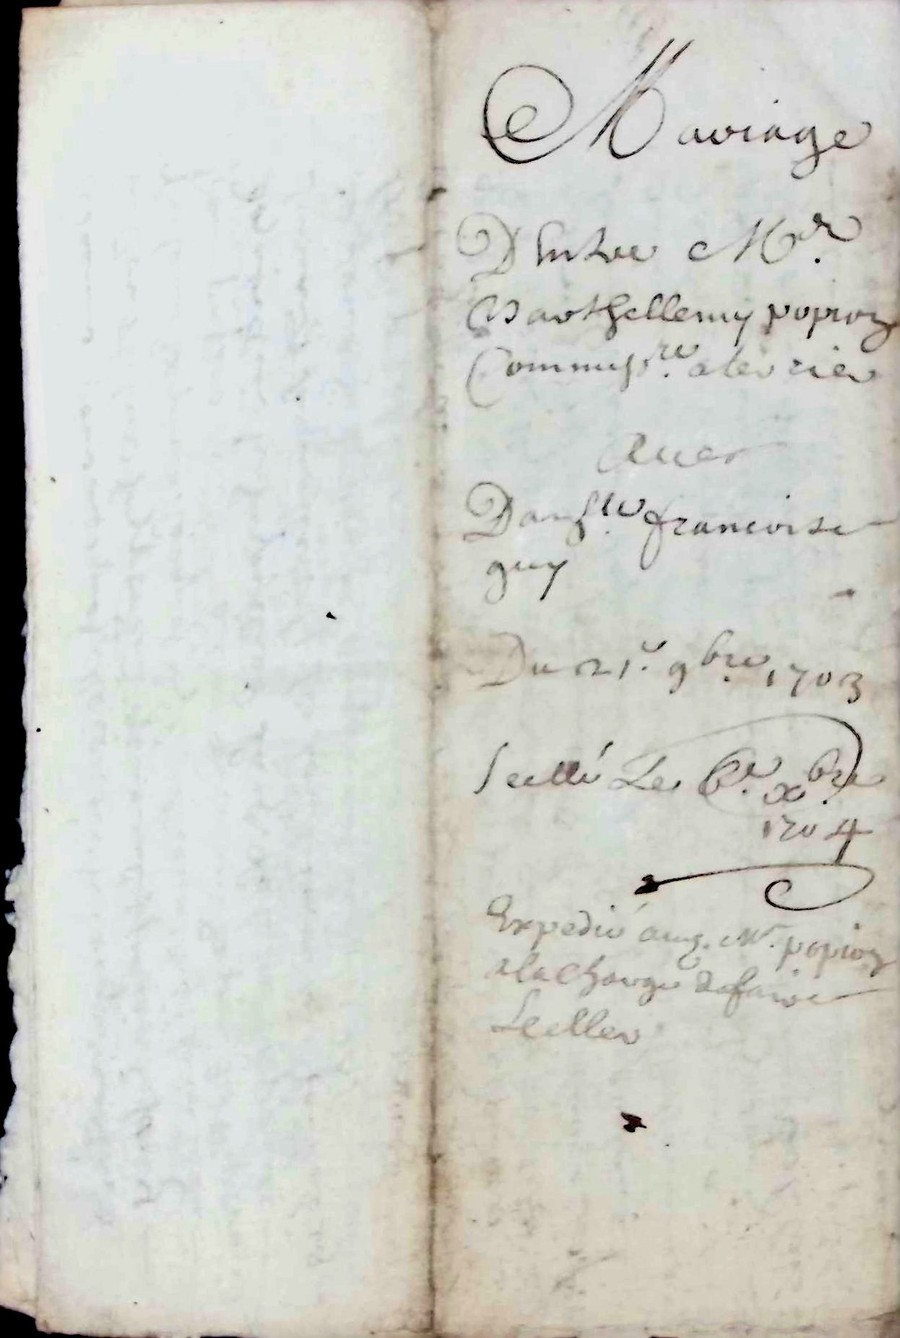 Mariage
D'Entre Mr.
Barthellemy popion
Commiss.re
Avec
Dams.lle francoise
guy
Du 21.e 9bre. 1703
Scellé Le 6.e xbre
1704
Expedié aud. Mr. popion
a la Charge de faire
Sceller